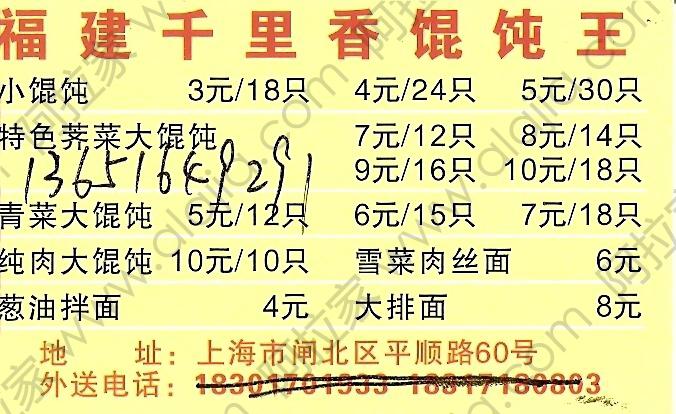 福建千里香馄饨王
小馄饨 3元/18只 4元/24只 5元/30只
特色荠菜大馄饨 7元/12只 8元/14只
13651649291 9元/16只 10元/18只
青菜大馄饨 5元/12只 6元/15只 7元/18只
纯肉大馄饨 10元/10只 雪菜肉丝面 6元
葱油拌面 4元 大排面 8元
地 址：上海市闸北区平顺路60号
外送电话：18301701933 18347180803
阿拉家 www.alajia.com